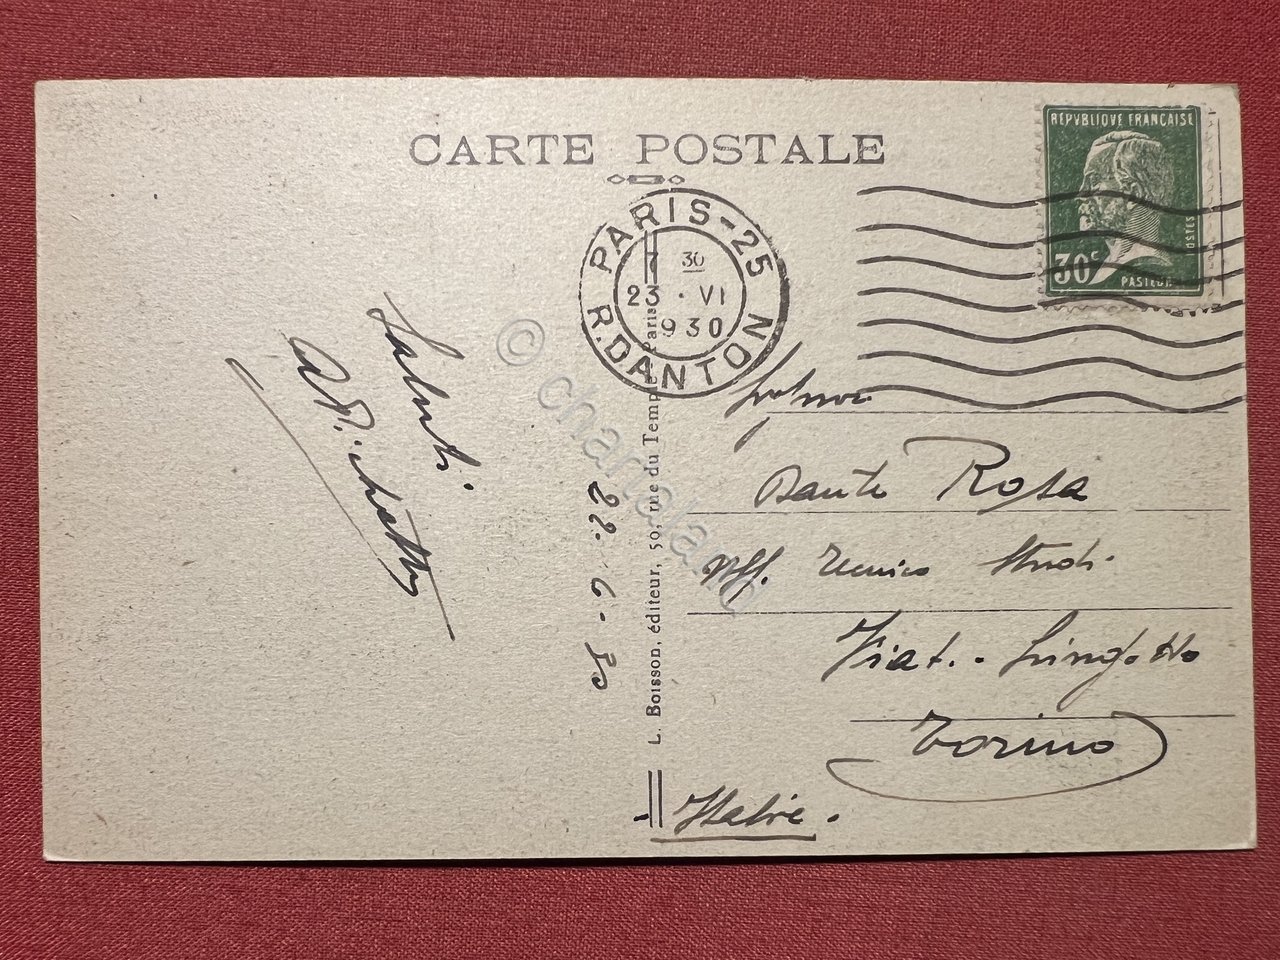 CARTE POSTALE
REPVBLIQVE FRANÇAISE
POSTES
30c
PASTEUR
PARIS-25
7 30
23 · VI
930
R. DANTON
Saluti
22. 6. 30
L. Boisson, éditeur, 50, rue du Temple, Paris
© chartaland
Dante Rosa
Uff. Tecnico Studi
Fiat.. Lingotto
Torino
Italie.